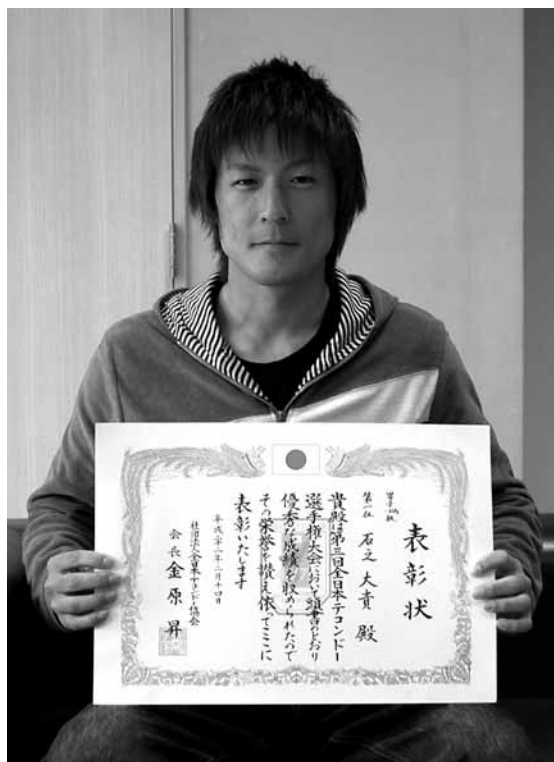 表彰状
男子
第一位 石之大貴殿
貴殿は第三回全日本テコンドー
選手権大会において頭書のとおり
優秀な成績を収められたので
その栄誉を讃え依ってここに
表彰いたします
平成二十二年二月十四日
社団法人全日本テコンドー協会
会長 金原 昇